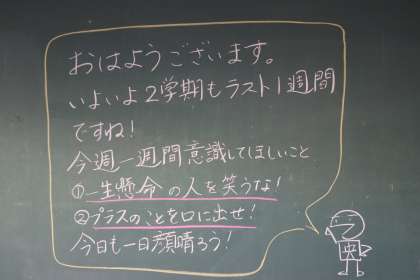 おはようございます。
いよいよ2学期もラスト1週間
ですね!
今週一週間意識してほしいこと
①一生懸命の人を笑うな!
②プラスのことを口に出せ!
今日も一日顔晴ろう!